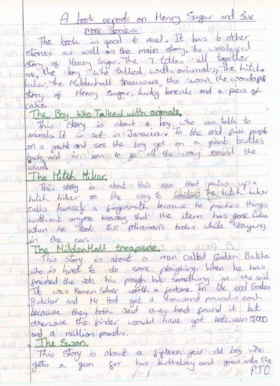 A book report on Henry Sugar and Six
more stories
The book is good to read. It has 6 other
stories as well as the main story, the wonderful
story of Henry Sugar. The 7 titles all together
are, the boy who talked with animals, The hitch
hiker, the Mildenhall treasure, the swan, the wonderful
story of Henry Sugar, lucky break and a piece of
cake.
The Boy Who Talked with animals.
This story is about a boy who can talk to
animals. It is set in Jamaica. In the end people
on a yacht and see the boy on a turtles
back and his son to go all the way round the
world.
The Hitch Hiker.
This story is about this man that picks up a
hitch hiker on the way to London. The hitch hiker
calls himself a fingersmith because he pinches things
without anyone knowing that the item has gone like
when he took the policeman's books while
in the car.
The Mildenhall treasure.
This story is about a man called Gordon Butcher
who is hired to do some ploughing. When he has
finished the job he found something in the soil.
It was Roman Silver worth a fortune. In the end Gordon
Butcher and Mr Ford got a thousand pounds each
because they both said they had found it but
otherwise the finder would have got between 500,000
and a million pounds.
The Swan.
This story is about a fifteen year old boy who
gets a gun for his birthday and goes with the
P.T.O